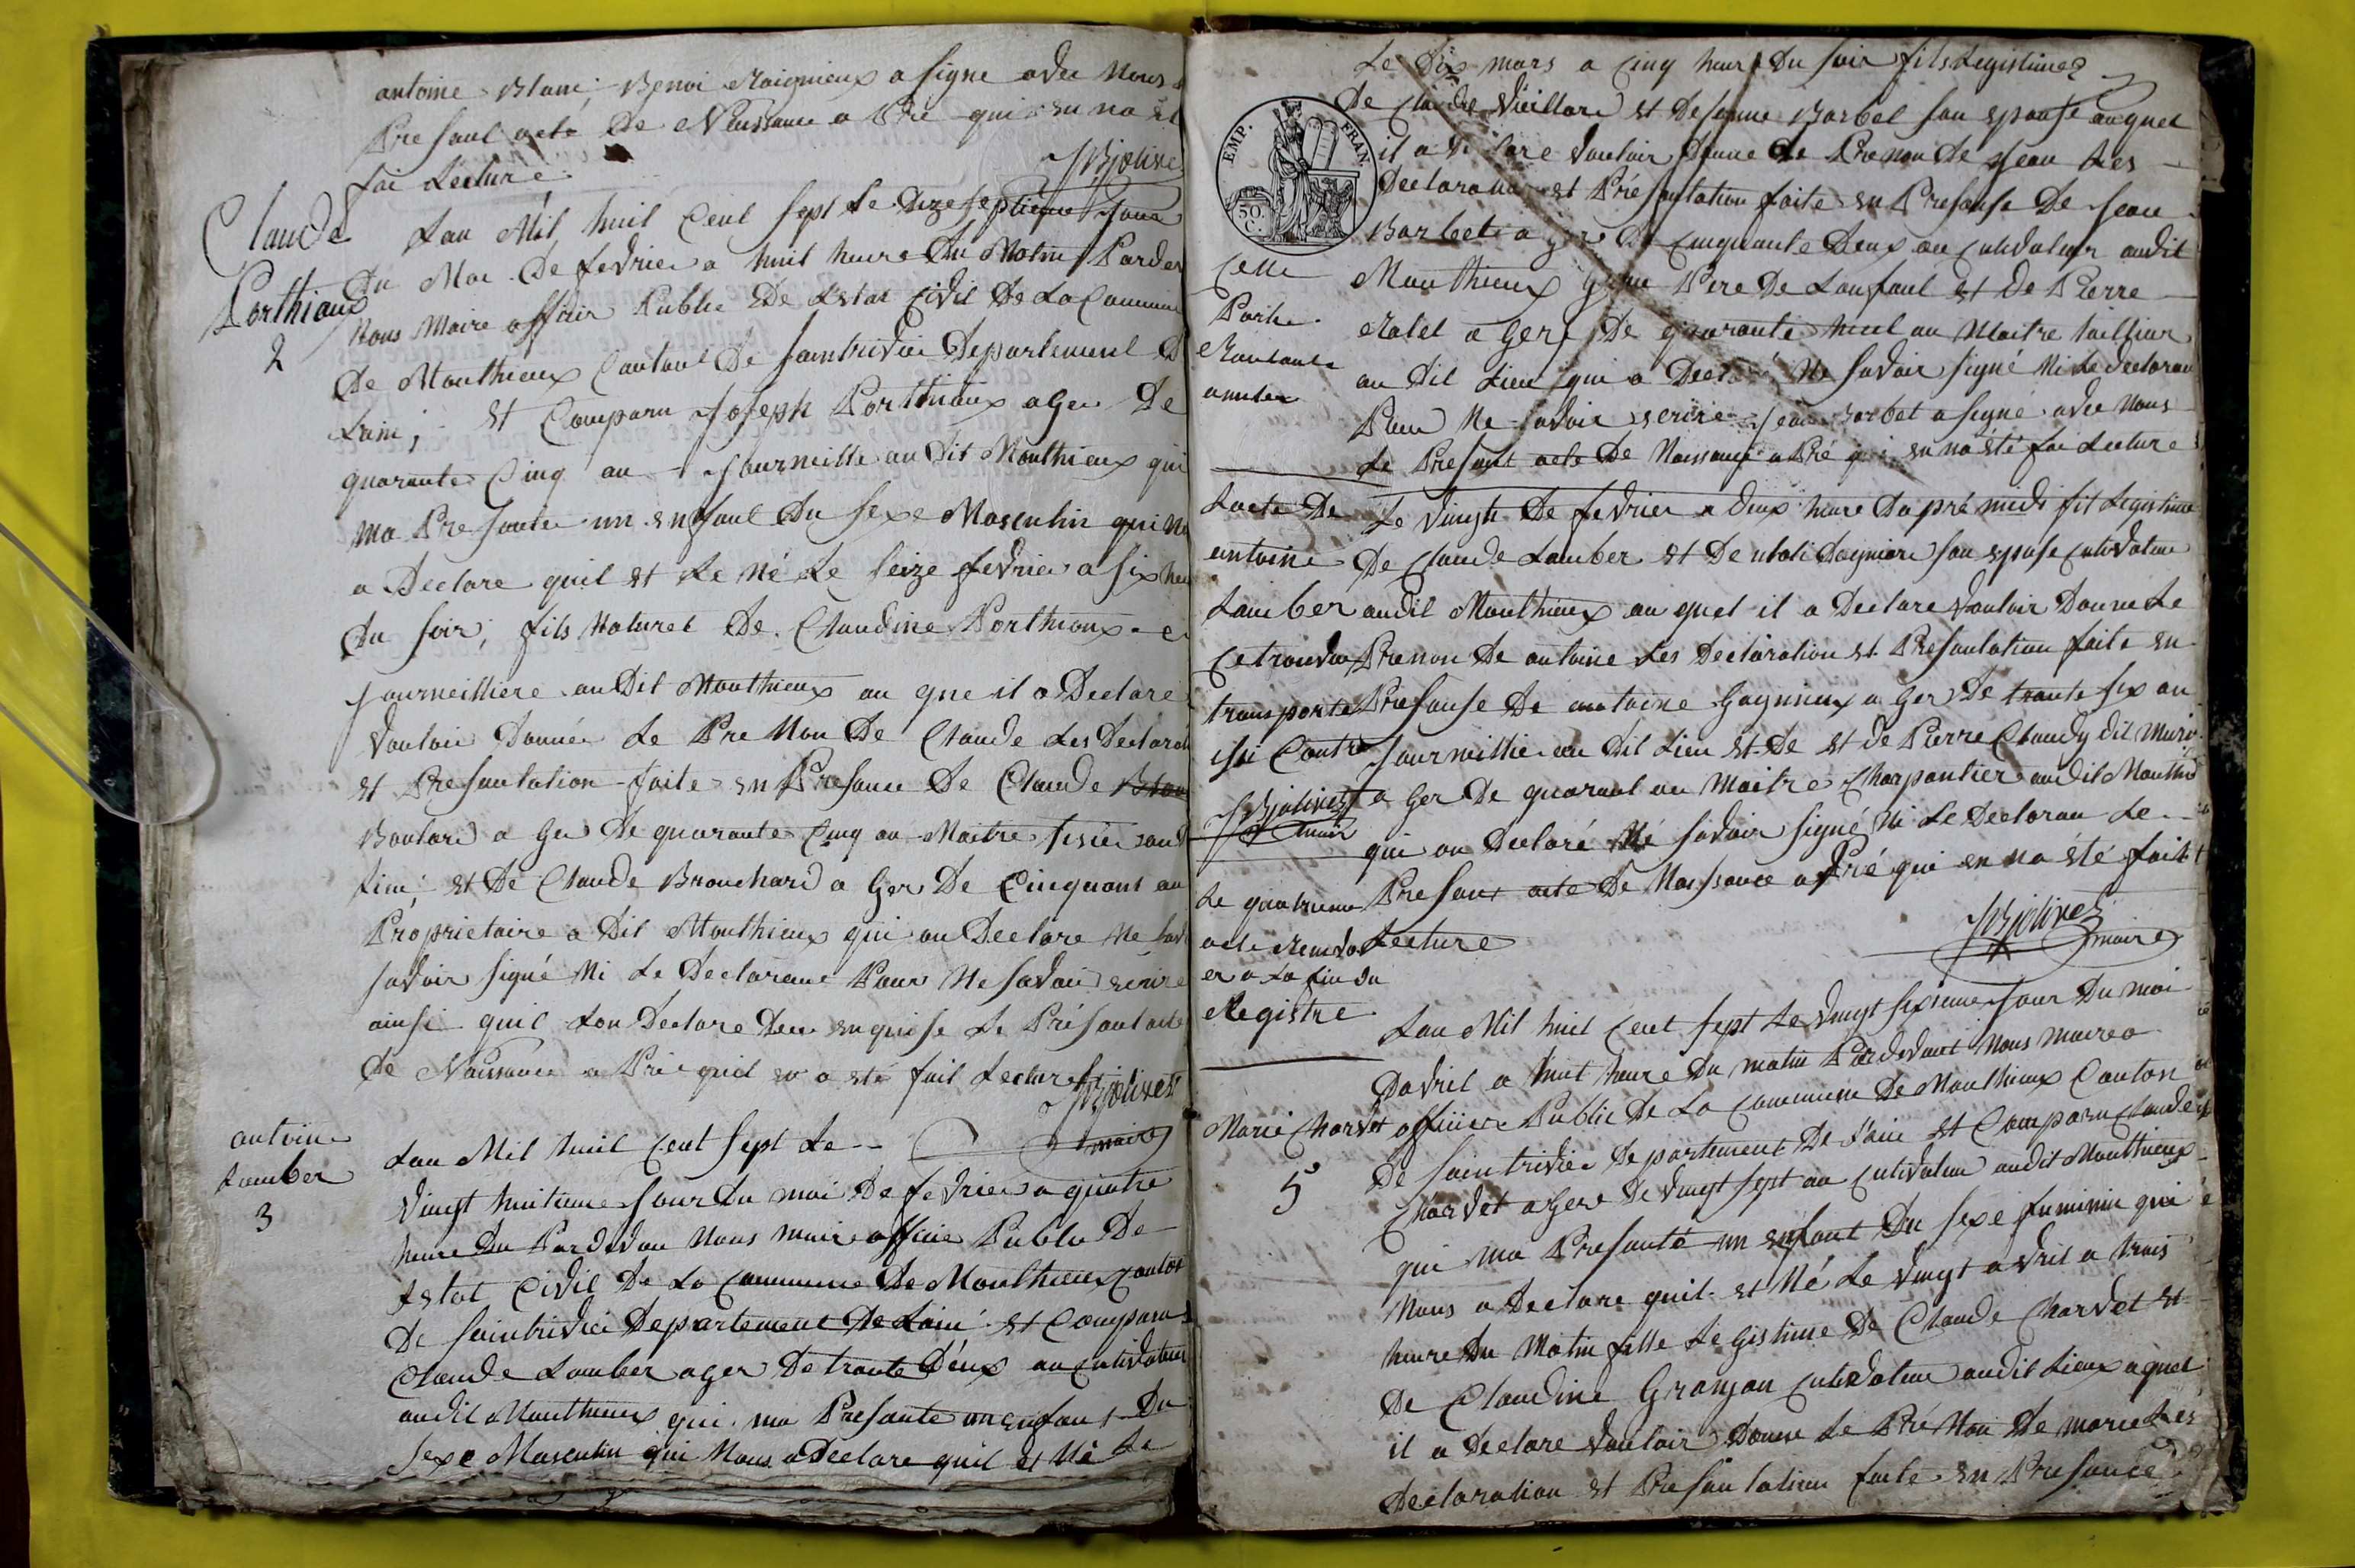 antoine Blanc, Benoi Raignieux a signe avec Nous
Presant acte De Naissance a Pré qui en na
fai Lecture
JBjolivet
Claude
Porthioux
2
Lan Mil huit Cent sept Le dizeseptieme Jour
Du Moi De fevrier a huit heure Du Matin Pardev
Nous Maire officir Public De Letat Civil De La Commune
De Monthieux Cantont De saintrivier Departement D
Lain; et Comparu Joseph Porthioux a Ger De
quarante Cinq an Journeille au Dit Monthieux qui
ma Presante un enfant Du sexe Masculin qui
a Declare quil et Le né Le seize fevrier a six heu
Du soir, fils Naturel De Claudine Porthioux
Journeilliere au Dit Monthieux au que il a Declare
vouloir Donner Le Pre Non De Claude Les Declarati
et Presantation faite en Presance De Claude
Boulard a Ger De quarante Cinq an Maitre tisier aud
Lieu; et De Claude Brouchard a Ger De Cinquant an
Proprietaire a Dit Monthieux qui on Declare Ne
savoir signé Ni Le Declarant Pour Ne savoir ecrire
ainsi quil Lon Declare De Le Présant acte
De Naissance a Pré quil en a eté fait Lecture
JBjolivet
maire
antoine
Lamber
3
Lan Mil huit Cent sept Le
vingt huitieme Jour Du moi De fevrier a quatre
heure Du Pardevan Nous maire officie Public De
Letat Civil De La Commune De Monthieux Canton
De saintrivier Departement De Lain et Comparu
Claude Lamber a Ger De trante Deux an Cultivateur
audit Monthieux qui ma Presante un enfant Du
sexe Masculin qui Nous a Declare quil et Né Le
Le Dix mars a Cinq heure Du soir fils Legistime
De Claude vieillard et De Jeanne Barbet son epouse auquel
il a Declare vouloir Donne Le Prenon De Jean Les
Declaration et Présantation faite en Presanse De Jean
Barbet a Ger De Cinquante Deux an Cultivateur audit
Monthieux Pere De Lanfant et De Pierre
a Ger De quarante huit an Maitre tailleur
au Dit Lieu qui a Declaré Ne savoir signé Ni Le declaran
Pour Ne savoir ecrire Jean Barbet a signé avec Nous
Le Presant acte De Naissance a Pré qui en na été fai Lecture
EMP. FRAN.
50. C.
Cette
Partie
annuler
Lacte De
antoine
Lamber
Ce trouve
transporte
isi Contre
JBjolivet
maire
Le vingt De fevrier a deux heure Dapré midi fil Legistime
De Claude Lamber et De son epouse Cultivateur
audit Monthieux au quel il a Declare vouloir Donne Le
Prenon De antoine Les Declaration et Presantation faite en
Presanse De antoine Gagnieux a Ger De trante six an
Journeillie au Dit Lieu et De et de Pierre Claudy dit
a Ger De quarant an Maitre Charpantier audit Monthieu
qui on Declaré Né savoir signé Ni Le Declaran Le
Presant acte De Naissance a Pré qui en na été fait
Lecture
JBjolivet
maire
Le quatrieme
acte
er a La fin du
Registre
Marie Charvet
5
Lan Mil huit Cent sept Le vingt sixieme Jour Du moi
Davril a huit heure Du matin Pardevant Nous maire
officiere Public De La Commune De Monthieux Canton
De saintrivier Departement De Lain et Comparu Claude
Charvet a Ger De vingt sept an Cultivateur audit Monthieux
qui ma Presanté un enfant Du sexe feminin qui
Nous a Declare quil et Né Le vingt avril a trois
heure Du Matin fille Legistime De Claude Charvet et
De Claudine Granjan Cultivateur audit Lieux aquel
il a Declare vouloir Donne Le Pré Non De marie Les
Declaration et Presantation faite en Presance